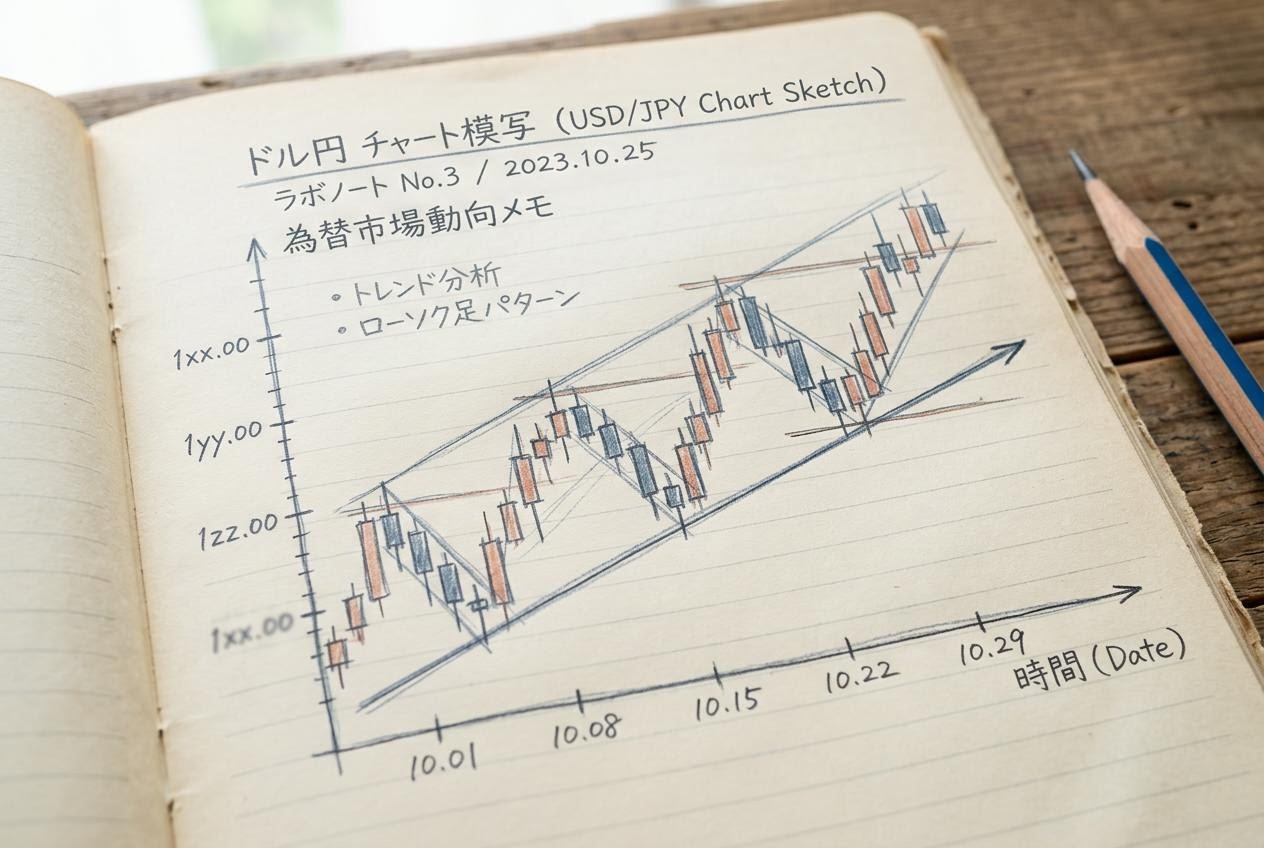 ドル円 チャート模写 (USD/JPY Chart Sketch)
ラボノート No.3 / 2023.10.25
為替市場動向メモ
• トレンド分析
• ローソク足パターン
1xx.00
1yy.00
1zz.00
1xx.00
10.01
10.08
10.15
10.22
10.29
時間 (Date)